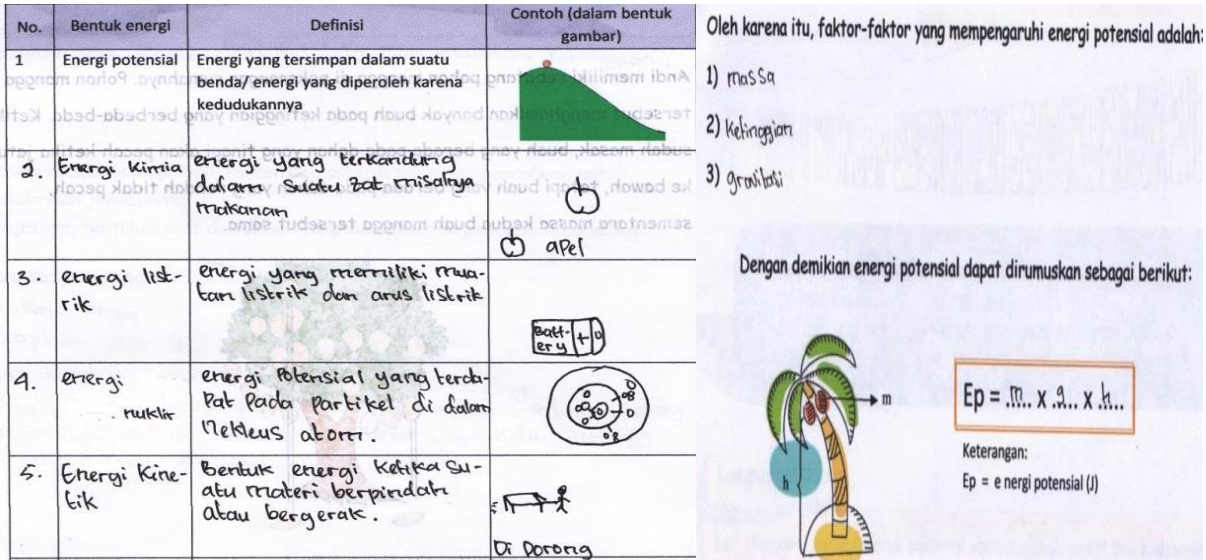 No. Bentuk energi Definisi Contoh (dalam bentuk
gambar)
1 Energi potensial Energi yang tersimpan dalam suatu
benda, energi yang diperoleh karena
kedudukannya
2. Energi kimia energi yang terkandung
dalam suatu zat misalnya
makanan
apel
3. energi list-
rik
energi yang memiliki mua-
tan listrik dan arus listrik
Batt-
ery + 0
4. energi
nuklir
energi Potensial yang terda-
Pat Pada Partikel di dalam
Nekleus atom.
5. Energi Kine-
tik
Bentuk energi ketika su-
atu materi berpindah
atau bergerak.
Di Dorong
Oleh karena itu, faktor-faktor yang mempengaruhi energi potensial adalah:
1) massa
2) ketinggian
3) gravitasi
Dengan demikian energi potensial dapat dirumuskan sebagai berikut:
m
h
Ep = .m.. x .g... x .h...
Keterangan:
Ep = e nergi potensial (J)